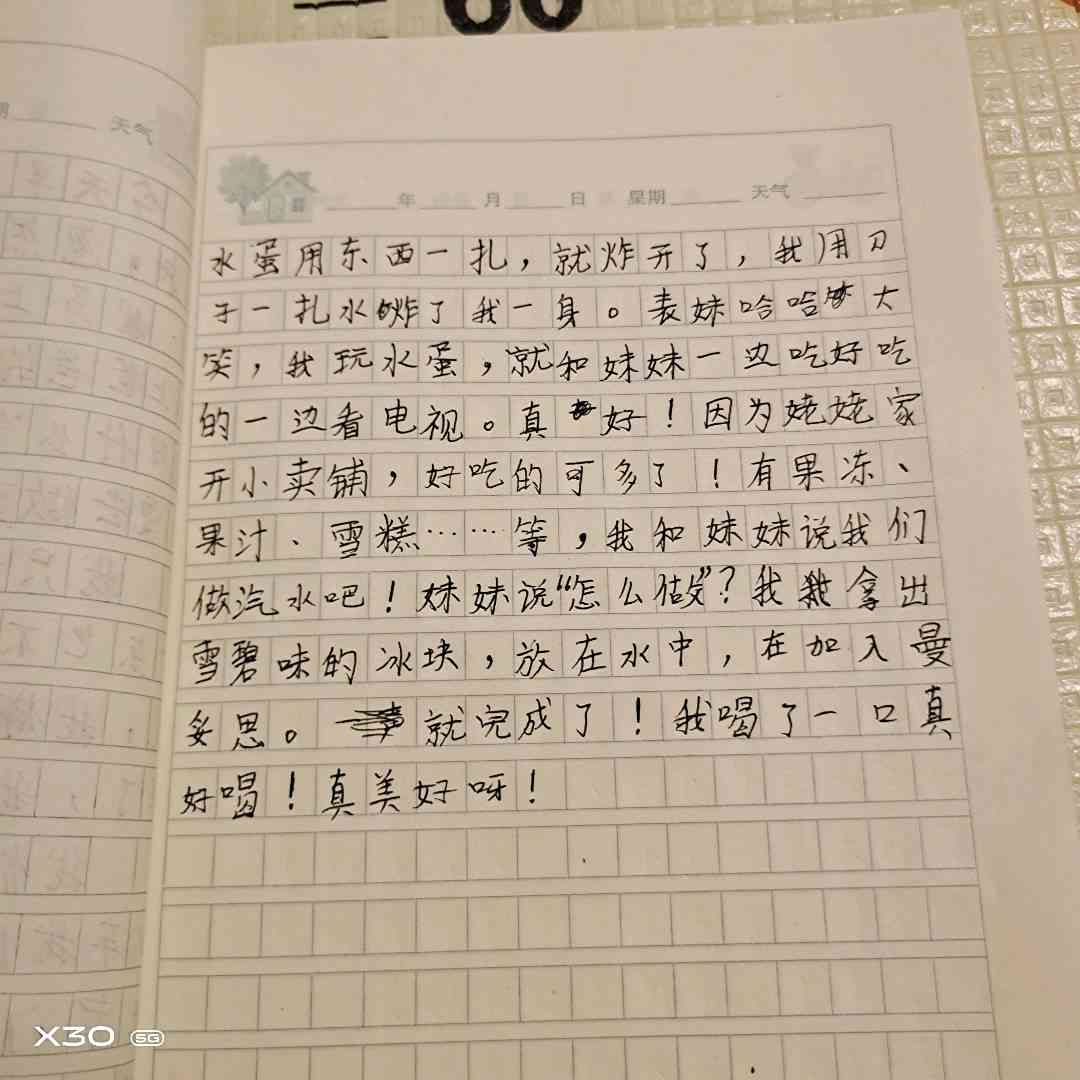 年 月 日 星期 天气
水蛋用东西一扎，就炸开了，我用刀
子一扎水炸了我一身。表妹哈哈大
笑，我玩水蛋，就和妹妹一边吃好吃
的一边看电视。真好！因为姥姥家
开小卖铺，好吃的可多了！有果冻、
果汁、雪糕……等，我和妹妹说我们
做汽水吧！妹妹说“怎么做”？我拿出
雪碧味的冰块，放在水中，在加入曼
妥思。就完成了！我喝了一口真
好喝！真美好呀！
天气
X30 5G